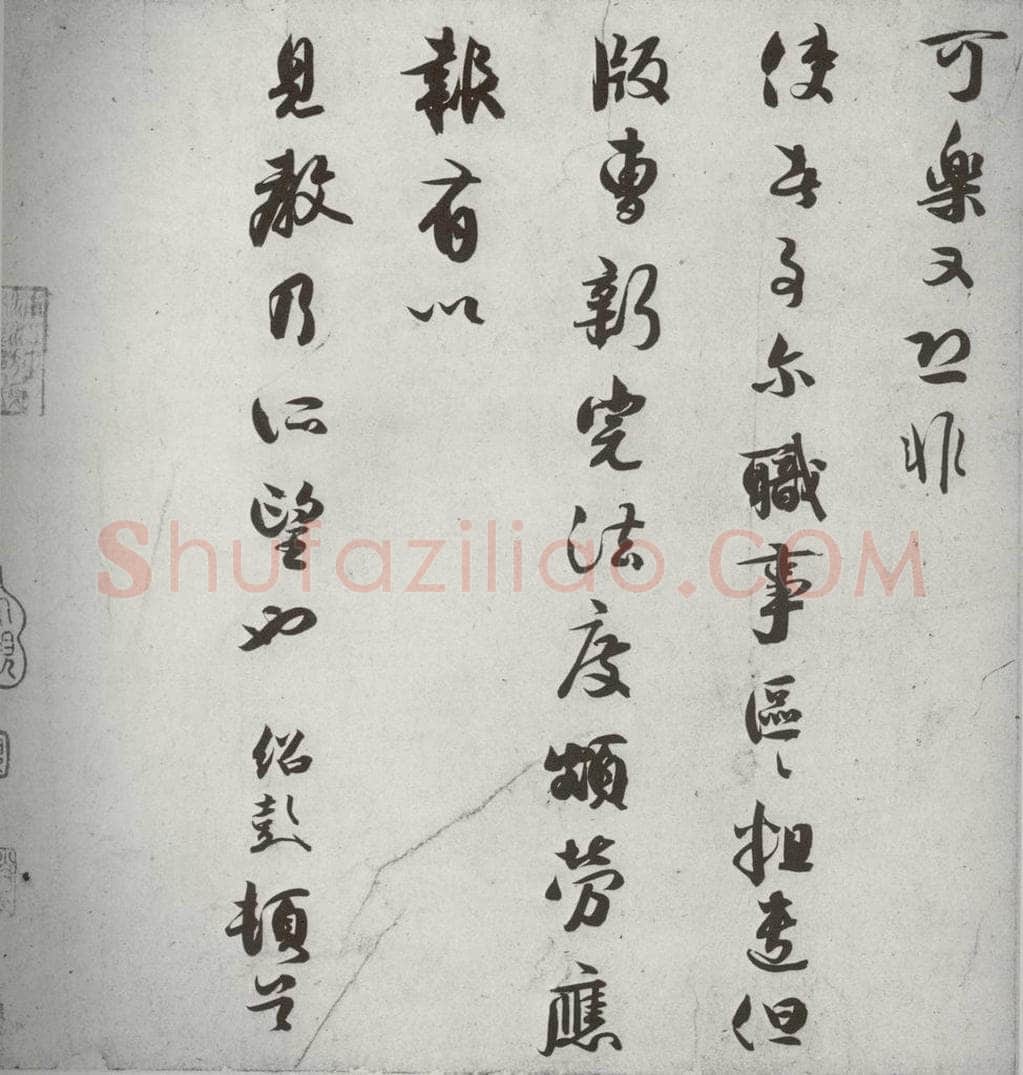 可樂又恐非
使尔職事區〻粗遣但
版曹新完法度頗勞應
報有以
見教乃所望也 紹彭頓首
Shufaziliao.COM